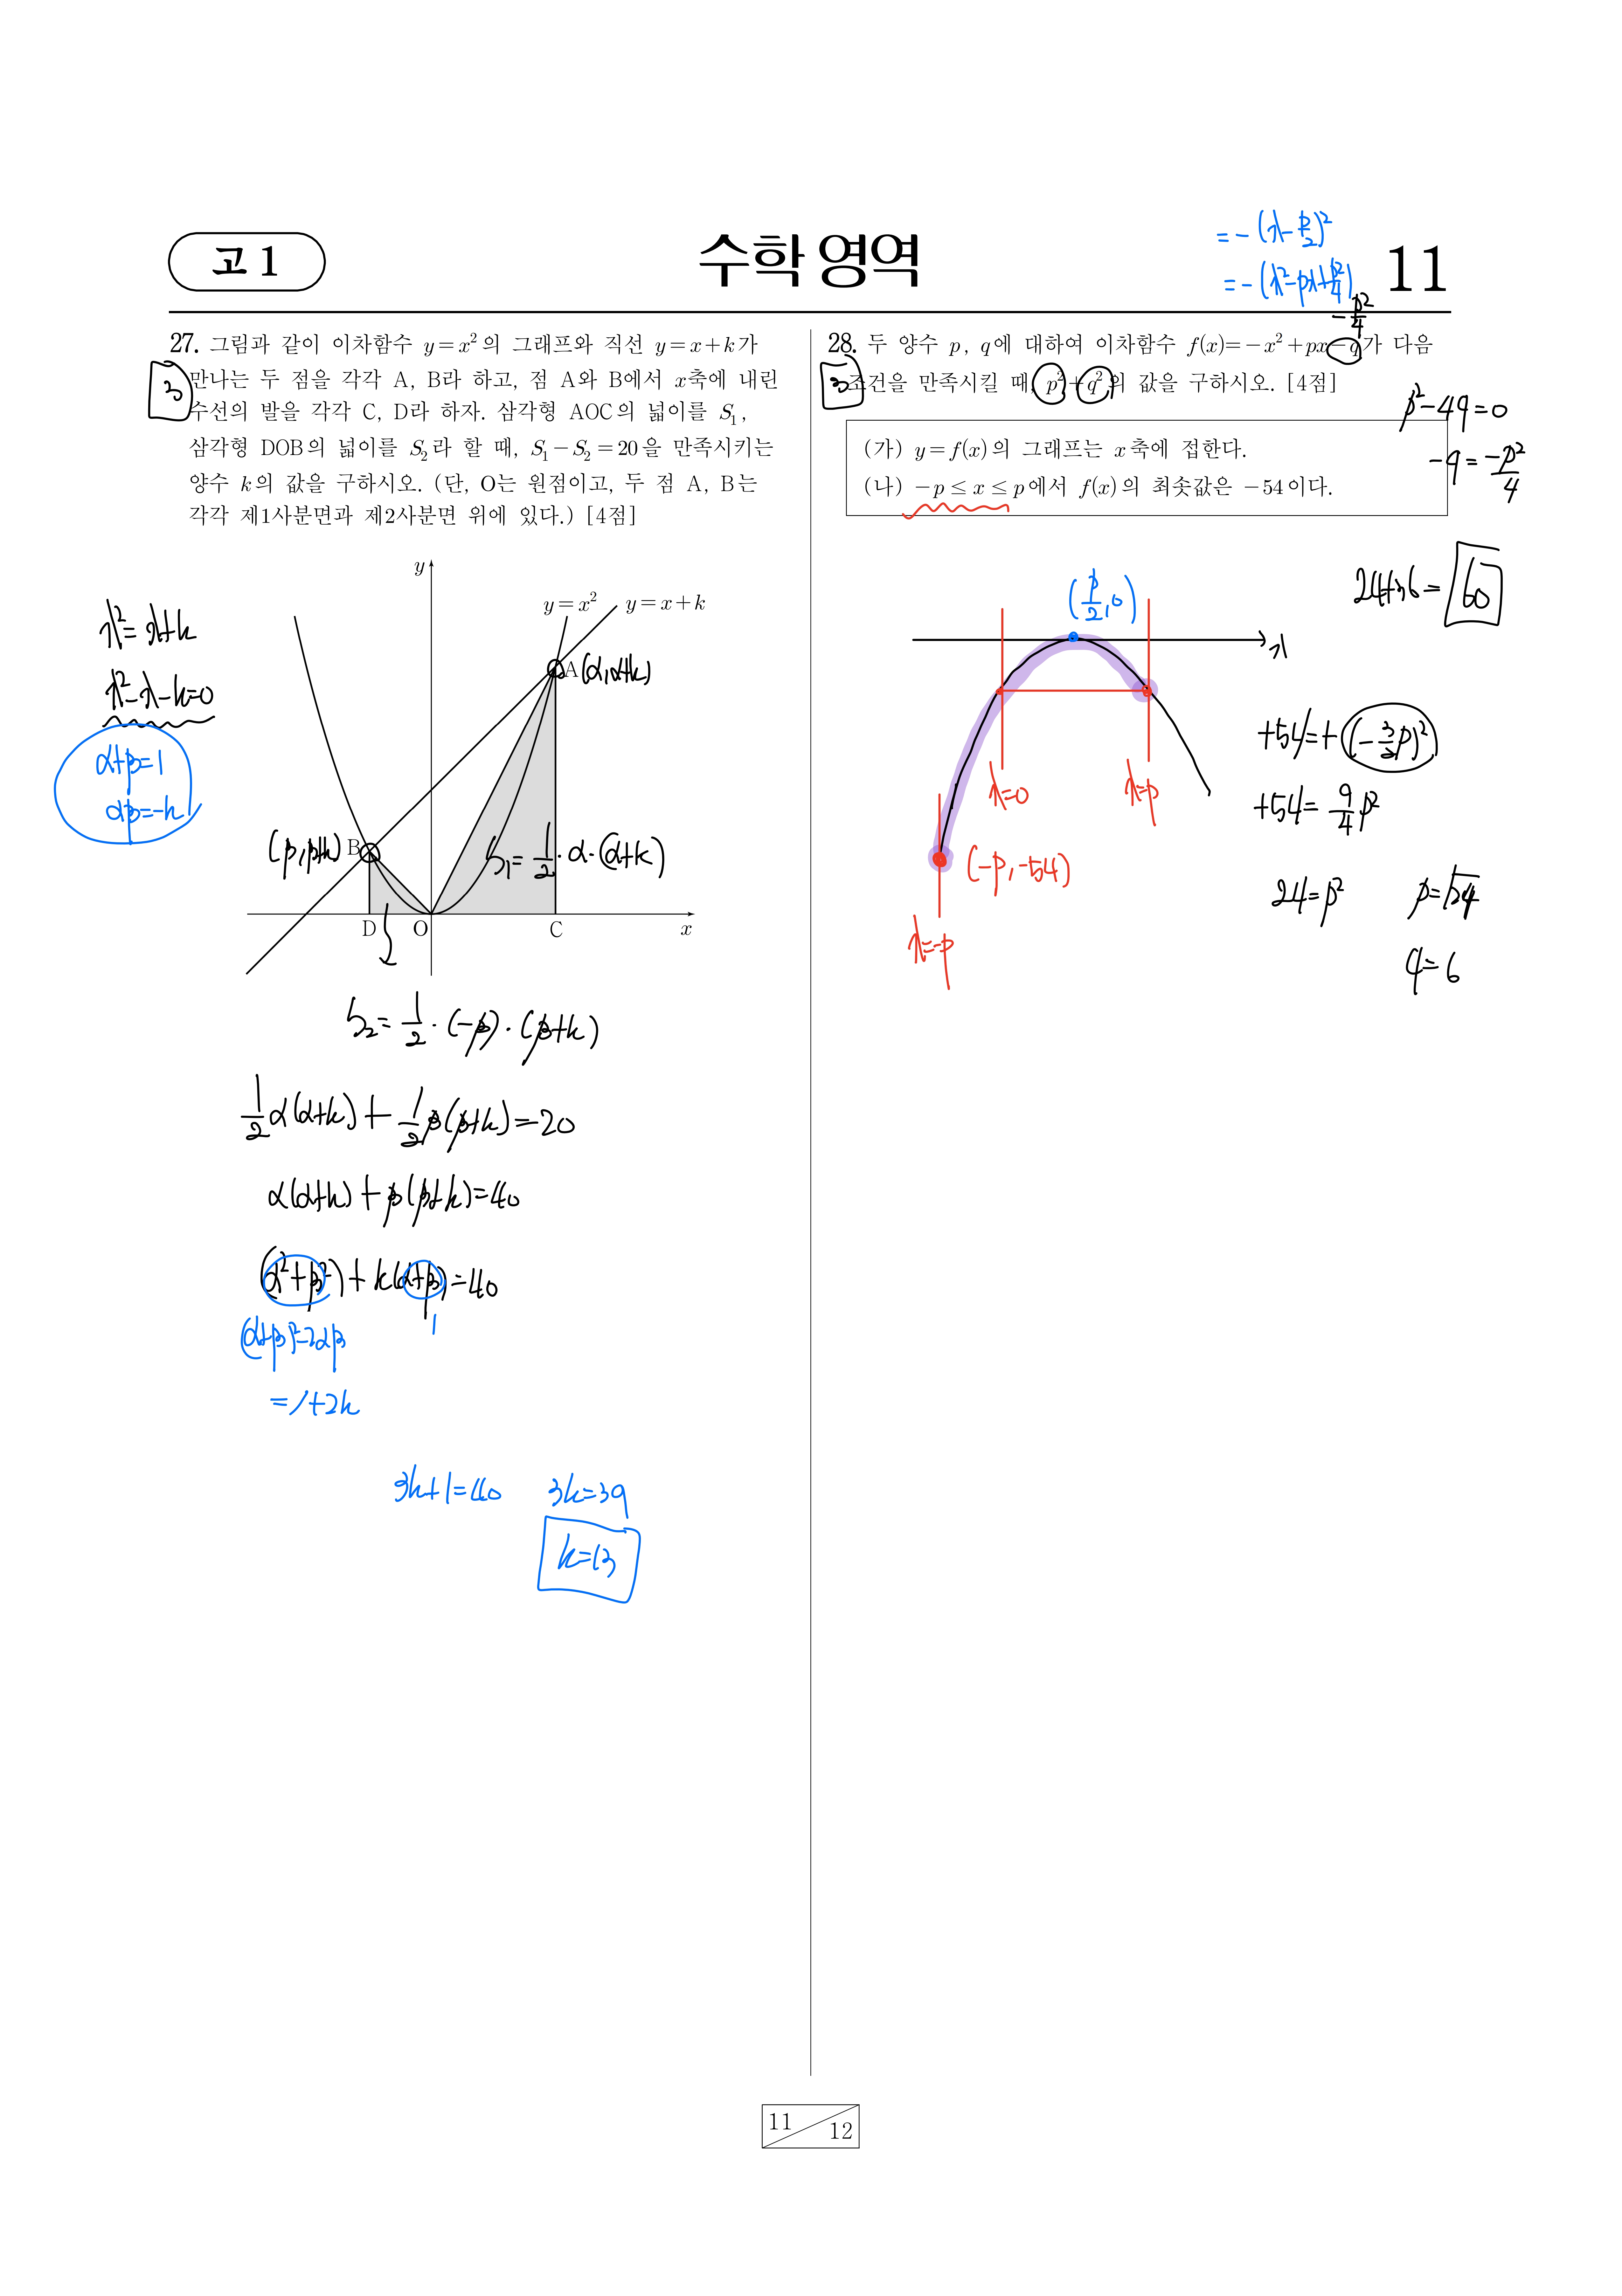 고 1
수학 영역
11
= -(x - p/2)²
= -(x² - px + p²/4)
27. 그림과 같이 이차함수 y = x² 의 그래프와 직선 y = x + k 가
만나는 두 점을 각각 A, B라 하고, 점 A와 B에서 x축에 내린
수선의 발을 각각 C, D라 하자. 삼각형 AOC의 넓이를 S₁,
삼각형 DOB의 넓이를 S₂라 할 때, S₁ - S₂ = 20을 만족시키는
양수 k의 값을 구하시오. (단, O는 원점이고, 두 점 A, B는
각각 제1사분면과 제2사분면 위에 있다.) [4점]
3
y
y = x²
y = x + k
A (α, α+k)
x² = x+k
x² - x - k = 0
α+β = 1
αβ = -k
(β, β+k) B
S₁ = 1/2 · α · (α+k)
D
O
C
x
S₂ = 1/2 · (-β) · (β+k)
1/2 α(α+k) + 1/2 β(β+k) = 20
α(α+k) + β(β+k) = 40
(α²+β²) + k(α+β) = 40
(α+β)² - 2αβ
1
= 1+2k
3k+1 = 40
3k = 39
k = 13
28. 두 양수 p, q에 대하여 이차함수 f(x) = -x² + px - q가 다음
조건을 만족시킬 때, p² + q²의 값을 구하시오. [4점]
3
-p²/4
(가) y = f(x)의 그래프는 x축에 접한다.
(나) -p ≤ x ≤ p에서 f(x)의 최솟값은 -54이다.
p² - 4q = 0
-q = -p²/4
24+36 = 60
(p/2, 0)
x
x=0
x=p
(-p, -54)
x=-p
+54 = +(-3/2 p)²
+54 = 9/4 p²
24 = p²
p = √24
q = 6
11
12